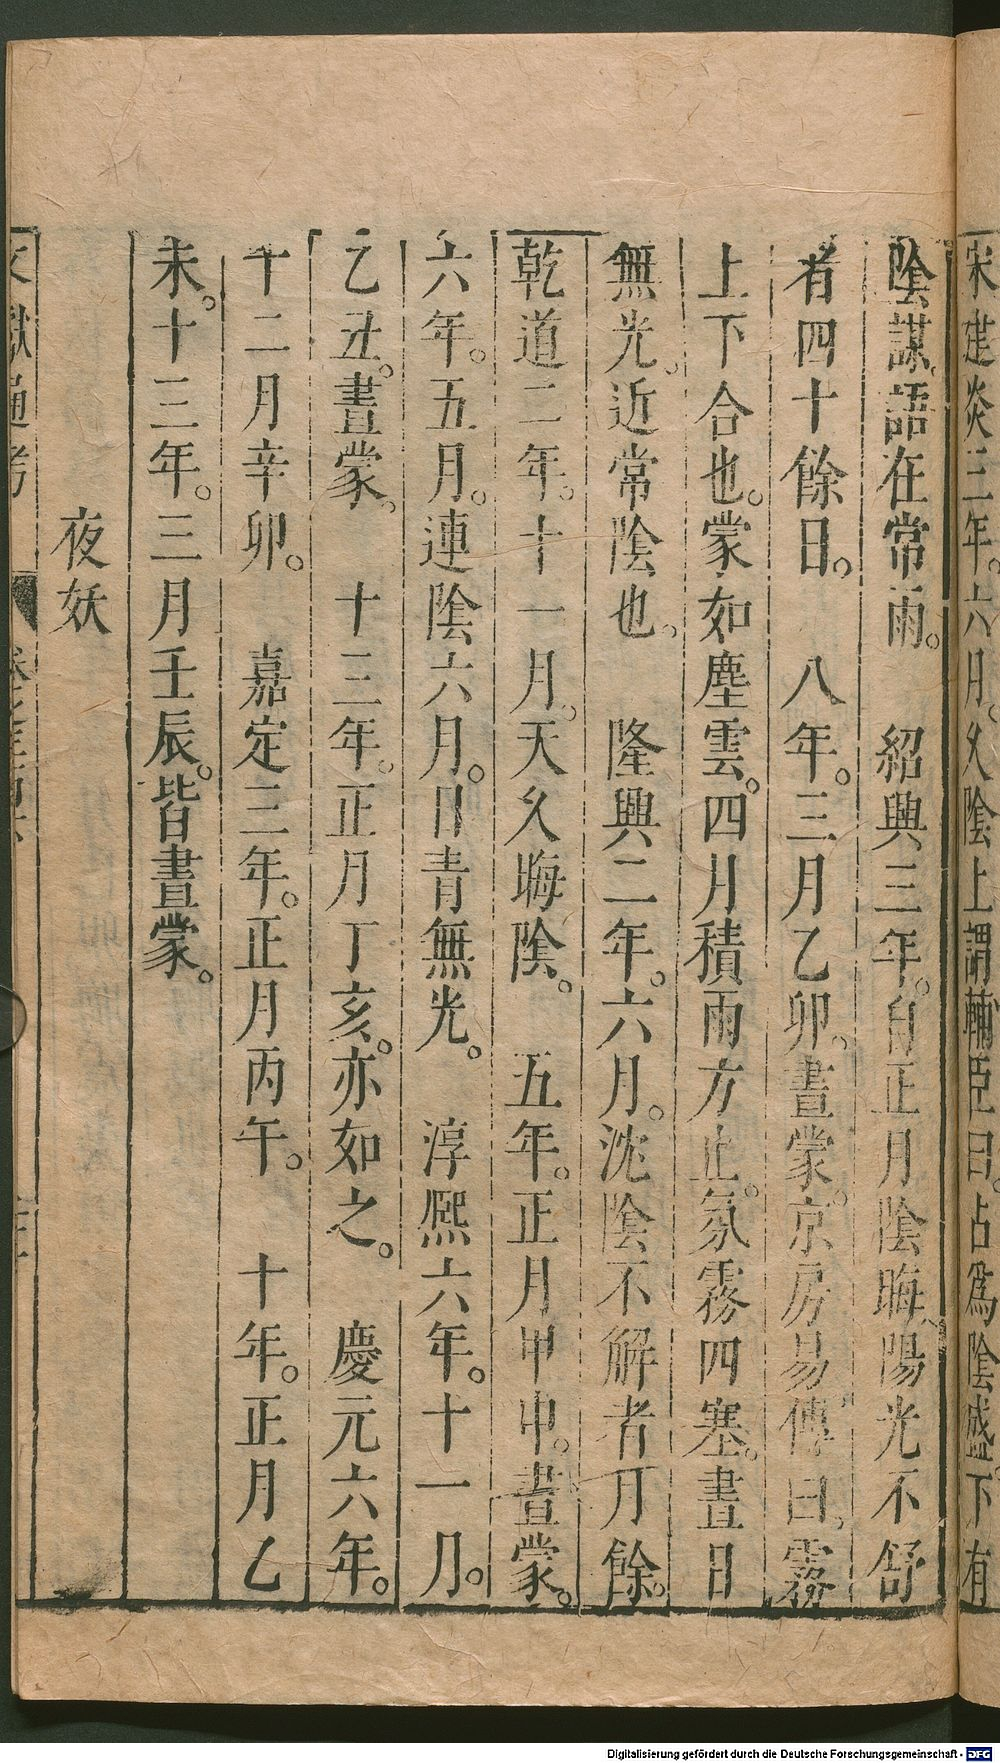 宋建炎三年。六月。久陰上謂輔臣曰。占爲陰盛。下有
陰謀。語在常雨。　紹興三年。自正月陰晦陽光不舒
者四十餘日。　八年。三月乙卯。晝蒙。京房易傳曰。霧
上下合也。蒙如塵雲。四月積雨方止。氛霧四塞。晝日
無光。近常陰也。　隆興二年。六月。沈陰不解者月餘。
乾道二年。十一月。天久晦陰。　五年。正月甲申。晝蒙。
六年。五月。連陰六月。日青無光。　淳熙六年。十一月。
乙丑。晝蒙。　十三年。正月丁亥。亦如之。　慶元六年。
十二月辛卯。　嘉定三年。正月丙午。　十年。正月乙
未。十三年。三月壬辰。皆晝蒙。
夜妖
文獻通考
Digitalisierung gefördert durch die Deutsche Forschungsgemeinschaft - DFG